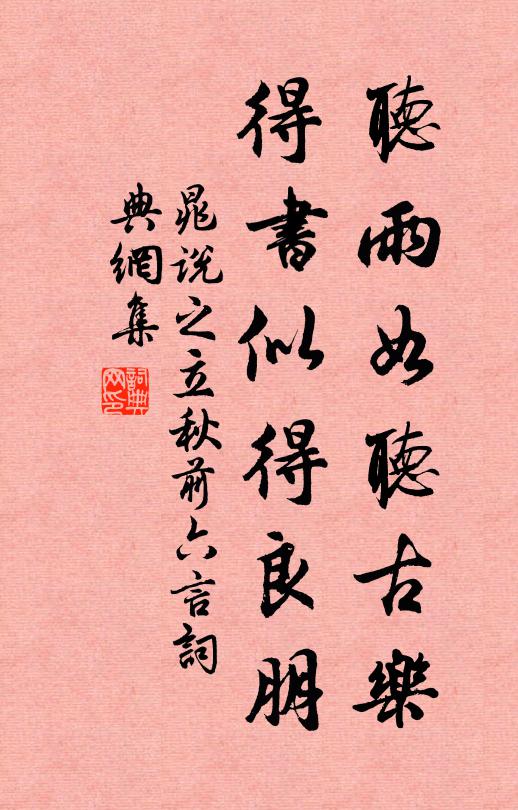 聽雨如聽古樂
得書似得良朋
晁說之立秋前六言詞
典網集
詞典網印